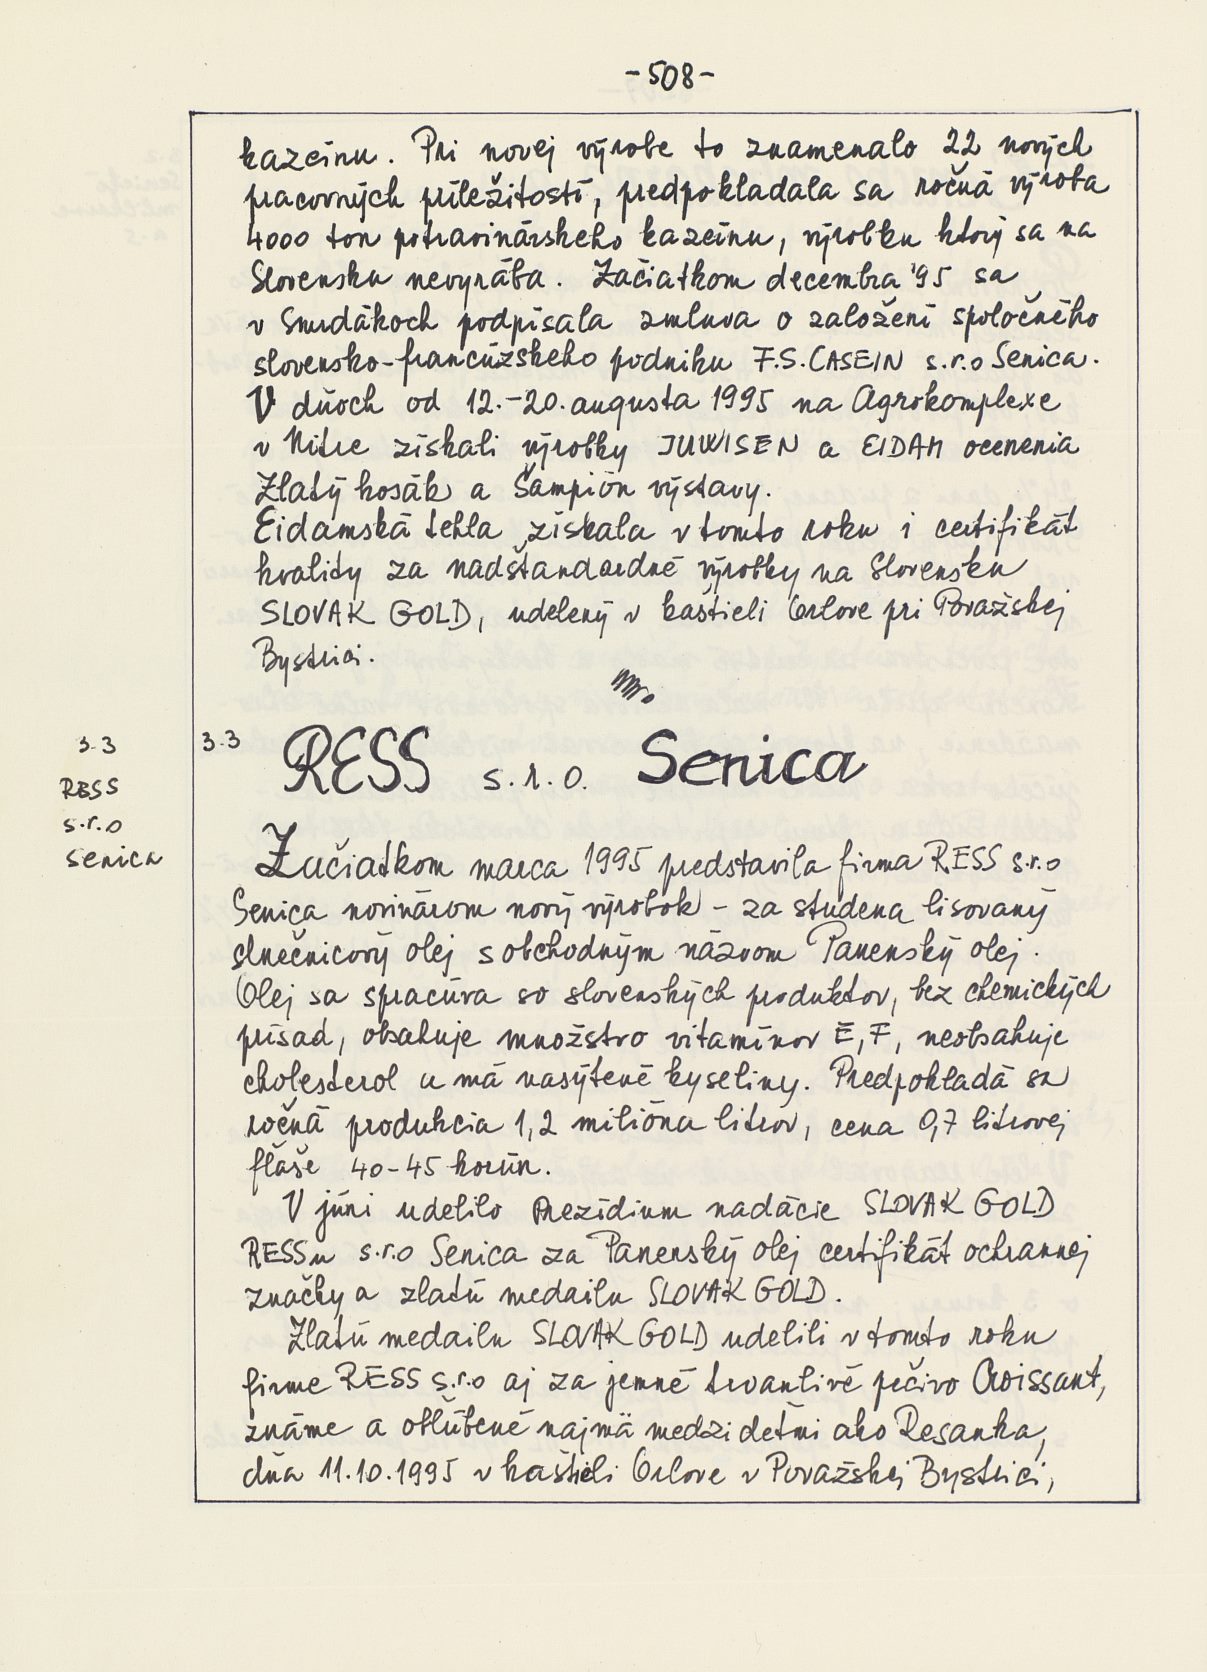 -508-
kazeínu. Pri novej výrobe to znamenalo 22 nových
pracovných príležitostí, predpokladala sa ročná výroba
4000 ton potravinárskeho kazeínu, výrobku ktorý sa na
Slovensku nevyrába. Začiatkom decembra '95 sa
v Smrdákoch podpísala zmluva o založení spoločného
slovensko-francúzskeho podniku F.S.CASEIN s.r.o Senica.
V dňoch od 12.-20. augusta 1995 na Agrokomplexe
v Nitre získali výrobky JUWISEN a EIDAM ocenenia
Zlatý kosák a Šampión výstavy.
Eidamská tehla získala v tomto roku i certifikát
kvality za nadštandardné výrobky na Slovensku
SLOVAK GOLD, udelený v kaštieli Orlove pri Považskej
Bystrici.
3.3 RESS s.r.o. Senica
3.3
RESS
s.r.o
Senica
Začiatkom marca 1995 predstavila firma RESS s.r.o
Senica novinárom nový výrobok - za studena lisovaný
slnečnicový olej s obchodným názvom Panenský olej.
Olej sa spracúva so slovenských produktov, bez chemických
prísad, obsahuje množstvo vitamínov E, F, neobsahuje
cholesterol a má nasýtené kyseliny. Predpokladá sa
ročná produkcia 1,2 milióna litrov, cena 0,7 litrovej
fľaše 40-45 korún.
V júni udelilo Prezídium nadácie SLOVAK GOLD
RESSu s.r.o Senica za Panenský olej certifikát ochrannej
značky a zlatú medailu SLOVAK GOLD.
Zlatú medailu SLOVAK GOLD udelili v tomto roku
firme RESS s.r.o aj za jemné trvanlivé pečivo Croissant,
známe a obľúbené najmä medzi deťmi ako Resanka,
dňa 11.10.1995 v kaštieli Orlove v Považskej Bystrici,